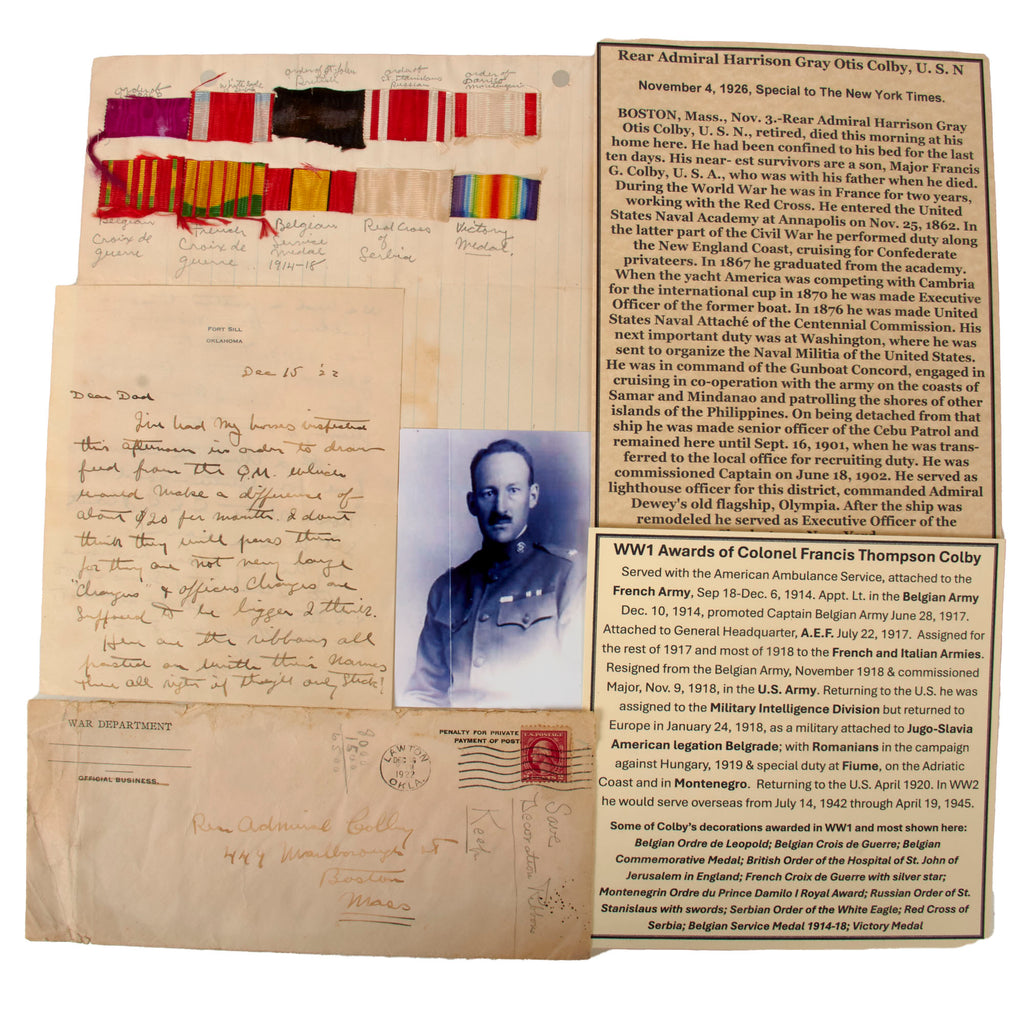 order of
White Eagle
order of St John
British
order of
St. Stanislaus
Russian
order of
Danilo
Montenegrin
Belgian
Croix de
guerre
French
Croix de
guerre
Belgian
Service
Medal
1914-18.
Red Cross
of
Serbia
Victory
Medal.
FORT SILL
OKLAHOMA
Dec 15 '22
Dear Dad
I've had my horses inspected
this afternoon in order to draw
feed from the Q.M. which
would make a difference of
about $20 per month. I don't
think they will pass them
for they are not very large
"Chargers" & officers Chargers are
supposed to be bigger I think.
Here are the ribbons all
pasted on with their names
all right if they'll only stick!
WAR DEPARTMENT
OFFICIAL BUSINESS.
PENALTY FOR PRIVATE
PAYMENT OF POST
LAWTON
DEC
1922
OKLA.
U.S. POSTAGE
Rear Admiral Colby
444 Marlborough St
Boston
Mass
Keep
Save
Decoration Ribbon
Rear Admiral Harrison Gray Otis Colby, U. S. N
November 4, 1926, Special to The New York Times.
BOSTON, Mass., Nov. 3.-Rear Admiral Harrison Gray
Otis Colby, U. S. N., retired, died this morning at his
home here. He had been confined to his bed for the last
ten days. His near- est survivors are a son, Major Francis
G. Colby, U. S. A., who was with his father when he died.
During the World War he was in France for two years,
working with the Red Cross. He entered the United
States Naval Academy at Annapolis on Nov. 25, 1862. In
the latter part of the Civil War he performed duty along
the New England Coast, cruising for Confederate
privateers. In 1867 he graduated from the academy.
When the yacht America was competing with Cambria
for the international cup in 1870 he was made Executive
Officer of the former boat. In 1876 he was made United
States Naval Attaché of the Centennial Commission. His
next important duty was at Washington, where he was
sent to organize the Naval Militia of the United States.
He was in command of the Gunboat Concord, engaged in
cruising in co-operation with the army on the coasts of
Samar and Mindanao and patrolling the shores of other
islands of the Philippines. On being detached from that
ship he was made senior officer of the Cebu Patrol and
remained here until Sept. 16, 1901, when he was trans-
ferred to the local office for recruiting duty. He was
commissioned Captain on June 18, 1902. He served as
lighthouse officer for this district, commanded Admiral
Dewey's old flagship, Olympia. After the ship was
remodeled he served as Executive Officer of the
WW1 Awards of Colonel Francis Thompson Colby
Served with the American Ambulance Service, attached to the
French Army, Sep 18-Dec. 6, 1914. Appt. Lt. in the Belgian Army
Dec. 10, 1914, promoted Captain Belgian Army June 28, 1917.
Attached to General Headquarter, A.E.F. July 22, 1917. Assigned for
the rest of 1917 and most of 1918 to the French and Italian Armies.
Resigned from the Belgian Army, November 1918 & commissioned
Major, Nov. 9, 1918, in the U.S. Army. Returning to the U.S. he was
assigned to the Military Intelligence Division but returned to
Europe in January 24, 1918, as a military attached to Jugo-Slavia
American legation Belgrade; with Romanians in the campaign
against Hungary, 1919 & special duty at Fiume, on the Adriatic
Coast and in Montenegro. Returning to the U.S. April 1920. In WW2
he would serve overseas from July 14, 1942 through April 19, 1945.
Some of Colby's decorations awarded in WW1 and most shown here:
Belgian Ordre de Leopold; Belgian Crois de Guerre; Belgian
Commemorative Medal; British Order of the Hospital of St. John of
Jerusalem in England; French Croix de Guerre with silver star;
Montenegrin Ordre du Prince Damilo I Royal Award; Russian Order of St.
Stanislaus with swords; Serbian Order of the White Eagle; Red Cross of
Serbia; Belgian Service Medal 1914-18; Victory Medal